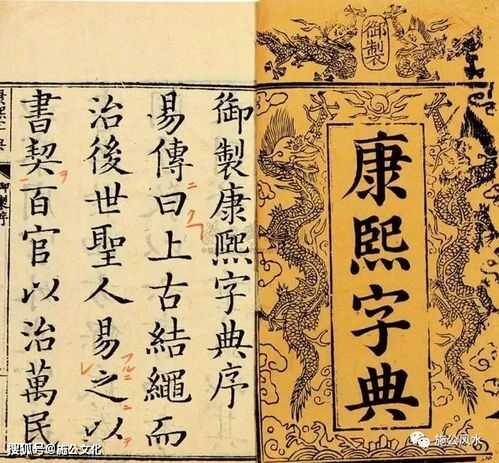 御製
康熙字典
御製康熙字典序
易傳曰上古結繩而
治後世聖人易之以
書契百官以治萬民
御製序
搜狐号@施公文化
施公风水